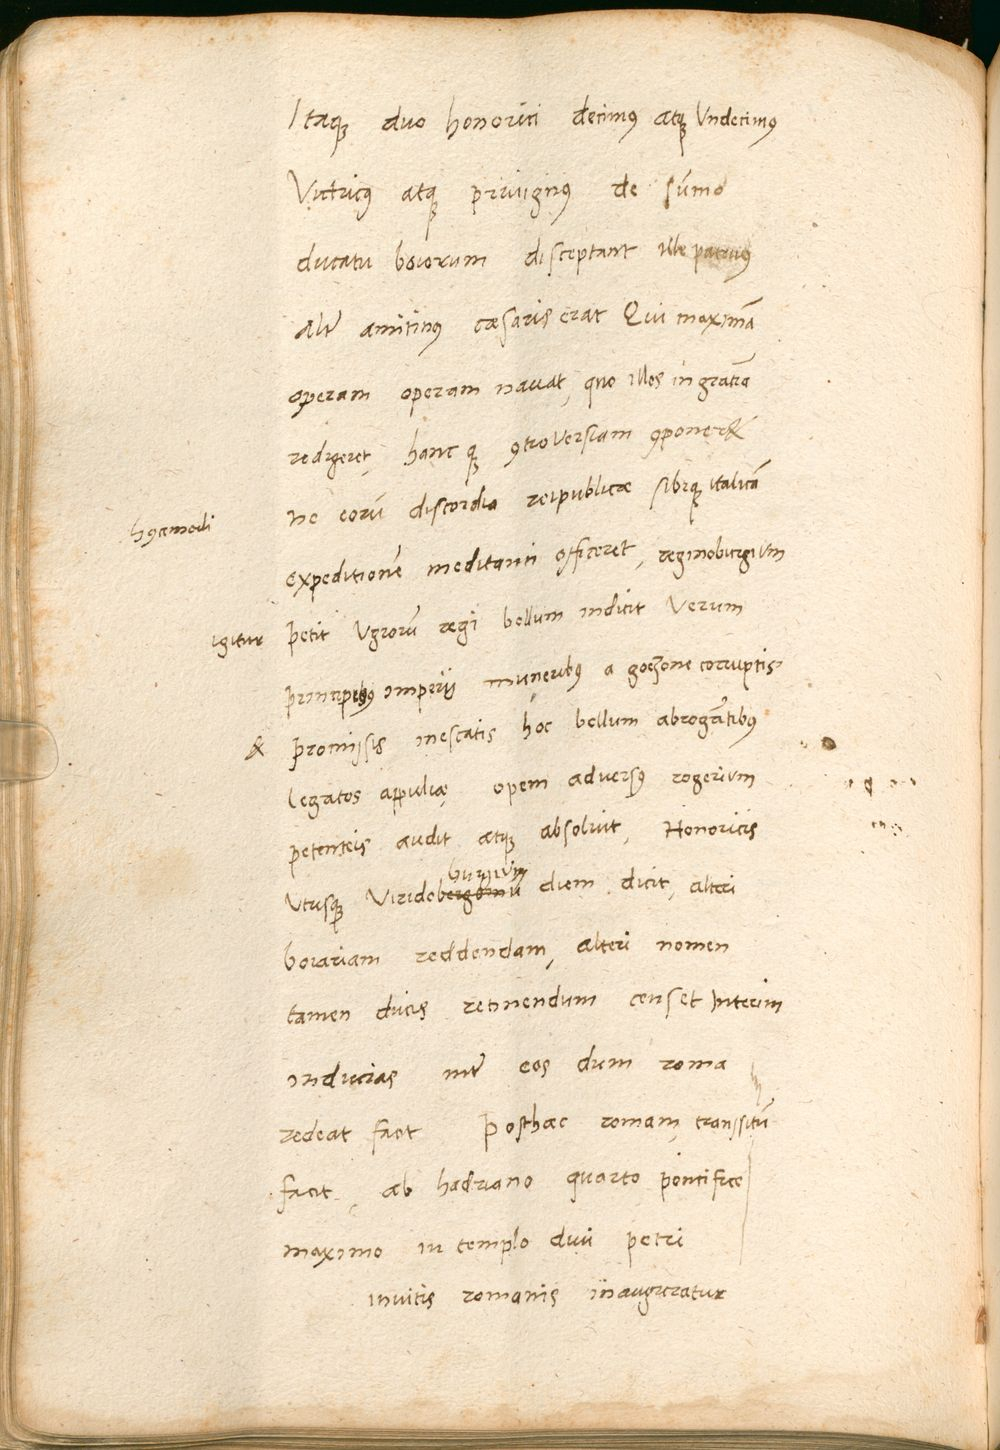 Itaqꝫ duo honorici decimꝰ atqꝫ Undecimꝰ
Vitricꝰ atqꝫ priuignꝰ de sūmo
ducatu boiorum disceptant ille patruꝰ
alt̄ amitinꝰ cæsaris erat Qui maximā
operam operam nauat, quo illos in gratiā
redigeret, hanc qꝫ ꝯtroversiam ꝯponeret
ne eorū discordia reipublicæ sibiqꝫ italicā
expeditionē meditanti officeret, reginoburgium
igitur petit Ugrorū regi bellum indicit Verum
principibꝰ imperij muneribꝰ a goezone corruptis
& promissis inescatis hoc bellum abrogātibꝰ
legatos appuliæ, opem adversꝰ rogerium
petenteis audit atqꝫ absolvit, Honoricis
burgium
Utrisqꝫ Viridobergōnū diem dicit, alteri
boiariam reddendam, alteri nomen
tamen ducis retinendum censet Interim
inducias int̄ eos dum roma
redeat facit Posthac romam, transsitū
facit, ab hadriano quarto pontifice
maximo in templo divi petri
invitis romanis inauguratur